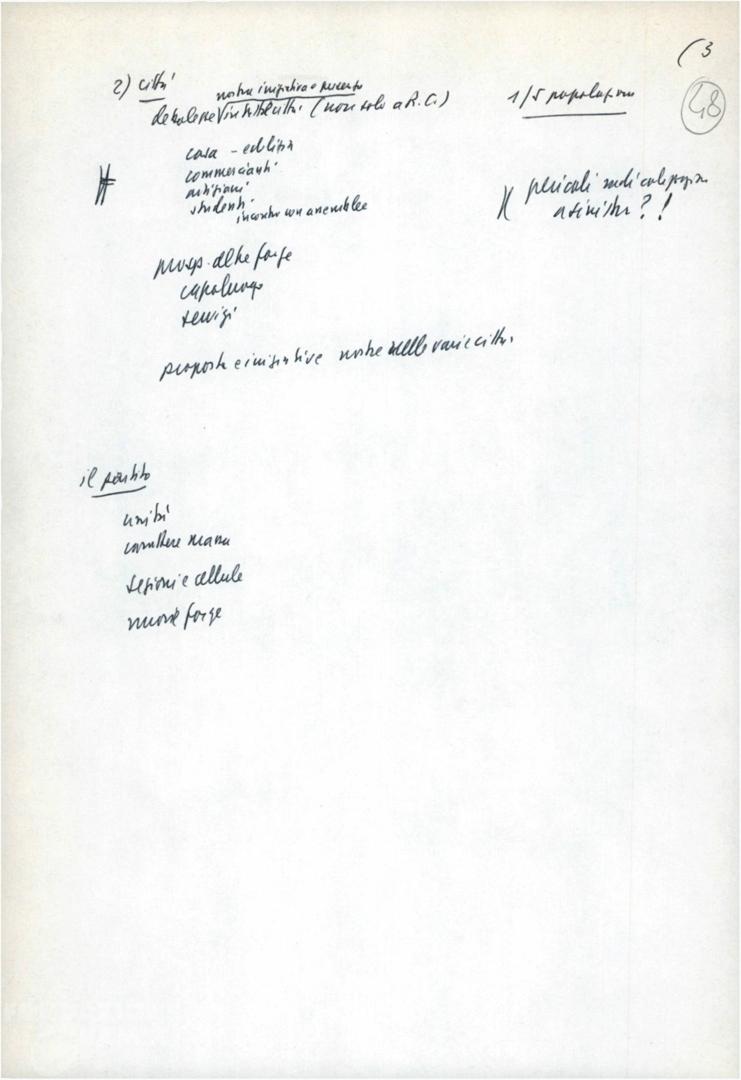 (3
48
2) città
nostra iniziativa e
debolezze in tutte città (non solo a R.C.)
1/5 popolazione
casa - edilizia
commercianti
artigiani
studenti
incontri con assemblee
pericoli
a sinistra?!
prosp. altre forze
capoluogo
servizi
proposte e iniziative nostre nelle varie città.
il partito
unità
carattere massa
sezioni e cellule
nuove forze